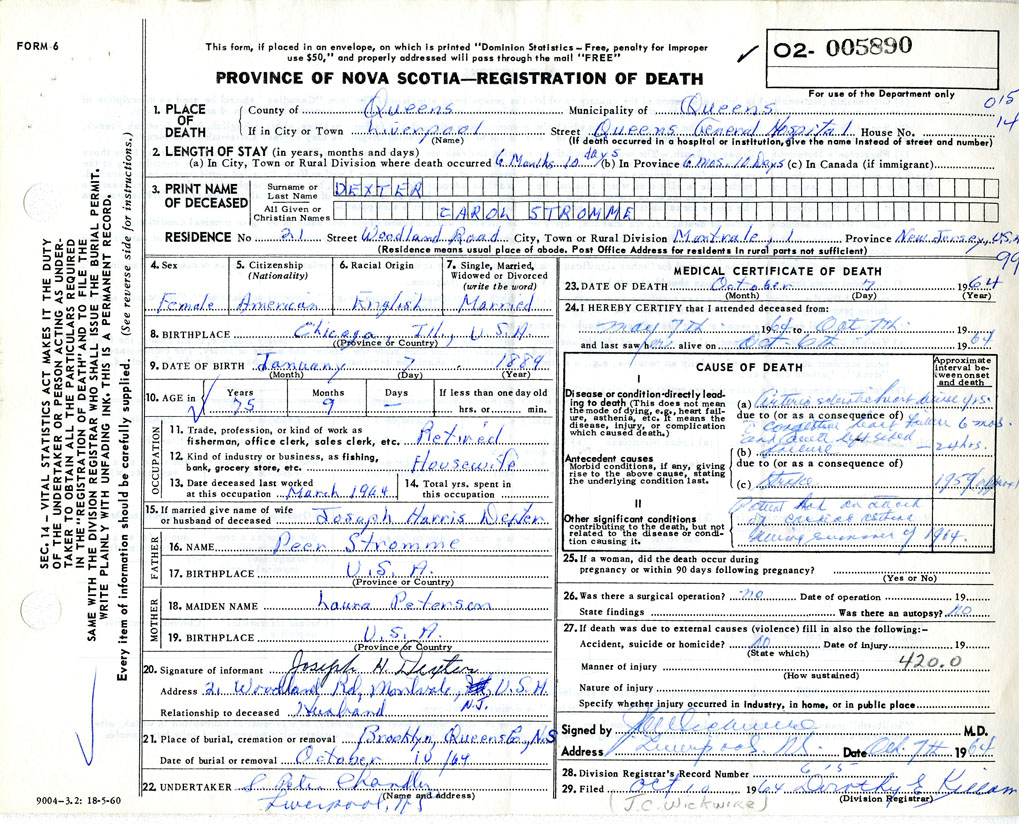 FORM 6
This form, if placed in an envelope, on which is printed "Dominion Statistics – Free, penalty for improper
use $50," and properly addressed will pass through the mail "FREE"
PROVINCE OF NOVA SCOTIA—REGISTRATION OF DEATH
✓ O2- 005890
For use of the Department only
015
14
1. PLACE OF DEATH
County of Queens Municipality of Queens
If in City or Town Liverpool Street Queens General Hospital House No.
(Name) (If death occurred in a hospital or institution, give the name instead of street and number)
2. LENGTH OF STAY (in years, months and days)
(a) In City, Town or Rural Division where death occurred 6 Months 10 days (b) In Province 6 mos. 10 Days (c) In Canada (if immigrant)
3. PRINT NAME OF DECEASED
Surname or Last Name DEXTER
All Given or Christian Names CAROL STROMME
RESIDENCE No 21 Street Woodland Road City, Town or Rural Division Montvale, 1 Province New Jersey, USA
(Residence means usual place of abode. Post Office Address for residents in rural parts not sufficient)
99
4. Sex
Female
5. Citizenship (Nationality)
American
6. Racial Origin
English
7. Single, Married, Widowed or Divorced (write the word)
Married
8. BIRTHPLACE Chicago, Ill., U.S.A.
(Province or Country)
9. DATE OF BIRTH January 7 1889
(Month) (Day) (Year)
10. AGE in Years 75 Months 9 Days – If less than one day old
hrs. or min.
OCCUPATION
11. Trade, profession, or kind of work as
fisherman, office clerk, sales clerk, etc. Retired
12. Kind of industry or business, as fishing,
bank, grocery store, etc. Housewife
13. Date deceased last worked
at this occupation March 1964
14. Total yrs. spent in
this occupation
15. If married give name of wife
or husband of deceased Joseph Harris Dexter
FATHER
16. NAME Peer Stromme
17. BIRTHPLACE U.S.A.
(Province or Country)
MOTHER
18. MAIDEN NAME Laura Peterson
19. BIRTHPLACE U.S.A.
(Province or Country)
20. Signature of informant Joseph H. Dexter
Address 21 Woodland Rd, Montvale, N.J. U.S.A.
Relationship to deceased Husband
21. Place of burial, cremation or removal Brooklyn, Queens Co., N.S
Date of burial or removal October 10/64
22. UNDERTAKER S Peter Chandler
(Name and address)
Liverpool, NS
9004–3.2: 18-5-60
MEDICAL CERTIFICATE OF DEATH
23. DATE OF DEATH October 7 1964
(Month) (Day)
24. I HEREBY CERTIFY that I attended deceased from:
May 7th 1964 to Oct 7th 19
and last saw h alive on Oct 6th 1964
CAUSE OF DEATH
Approximate interval between onset and death
I
Disease or condition directly leading to death (This does not mean
the mode of dying, e.g., heart failure, asthenia, etc. It means the
disease, injury, or complication
which caused death.)
(a) heart disease yrs.
due to (or as a consequence of)
congestive heart failure 6 mos.
and acute left sided
(b) failure – 24 hrs.
Antecedent causes
Morbid conditions, if any, giving
rise to the above cause, stating
the underlying condition last.
due to (or as a consequence of)
(c) Stroke 1959
II
Other significant conditions
contributing to the death, but not
related to the disease or condition causing it.
Patient had an attack
of cardiac asthma
during summer of 1964.
25. If a woman, did the death occur during
pregnancy or within 90 days following pregnancy?
(Yes or No)
26. Was there a surgical operation? no Date of operation 19
State findings Was there an autopsy? No
27. If death was due to external causes (violence) fill in also the following:–
Accident, suicide or homicide? No Date of injury 19
(State which)
Manner of injury 420.0
(How sustained)
Nature of injury
Specify whether injury occurred in Industry, in home, or in public place
Signed by J C Wickwire M.D.
Address Liverpool N.S. Date Oct. 7th 1964
28. Division Registrar's Record Number 615
29. Filed Oct 10 1964 Dorothy E Killam
(Division Registrar)
(J.C. WICKWIRE)
SEC. 14 – VITAL STATISTICS ACT MAKES IT THE DUTY
OF THE UNDERTAKER OR PERSON ACTING AS UNDERTAKER TO OBTAIN ALL THE PARTICULARS REQUIRED
IN THE "REGISTRATION OF DEATH" AND TO FILE THE
SAME WITH THE DIVISION REGISTRAR WHO SHALL ISSUE THE BURIAL PERMIT.
WRITE PLAINLY WITH UNFADING INK. THIS IS A PERMANENT RECORD.
Every item of information should be carefully supplied. (See reverse side for instructions.)